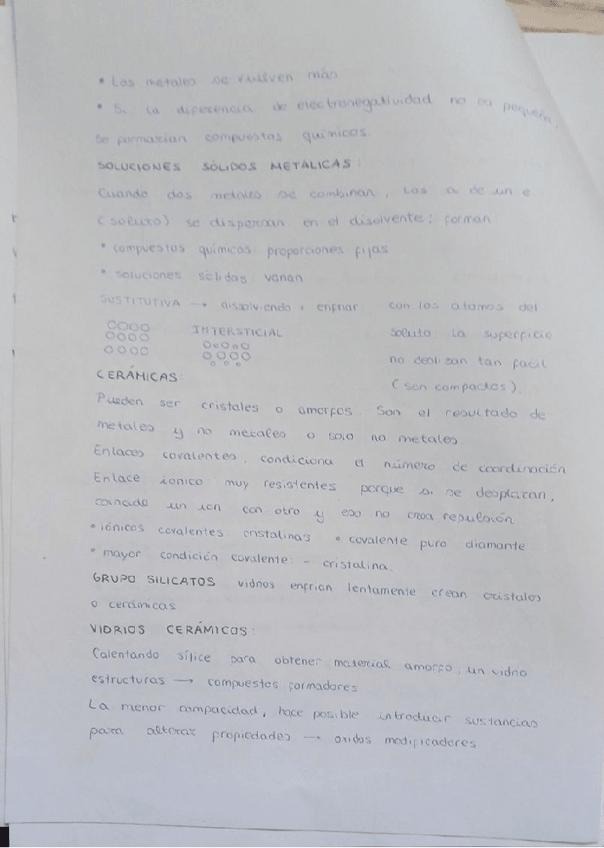 • Los metales se vuelven más
• Si la diferencia de electronegatividad no es pequeña,
se formarían compuestos químicos.
SOLUCIONES SÓLIDOS METÁLICAS:
Cuando dos metales se combinan, los a de un e
(soluto) se dispersan en el disolvente: forman
• compuestos químicos proporciones fijas
• soluciones sólidas varían
SUSTITUTIVA → disolviendo + enfriar
INTERSTICIAL
con los átomos del
soluto la superficie
no deslizan tan fácil
(son compactos).
CERÁMICAS:
Pueden ser cristales o amorfos. Son el resultado de
metales y no metales o solo no metales.
Enlaces covalentes, condiciona el número de coordinación
Enlace iónico muy resistentes porque si se desplazan,
coincide un ion con otro y eso no crea repulsión
• iónicos covalentes cristalinas • covalente puro diamante
• mayor condición covalente - cristalina.
GRUPO SILICATOS vidrios enfrian lentamente crean cristales
o cerámicas
VIDRIOS CERÁMICOS:
Calentando sílice para obtener material amorfo, un vidrio
estructuras → compuestos formadores
La menor compacidad, hace posible introducir sustancias
para alterar propiedades → oxidos modificadores